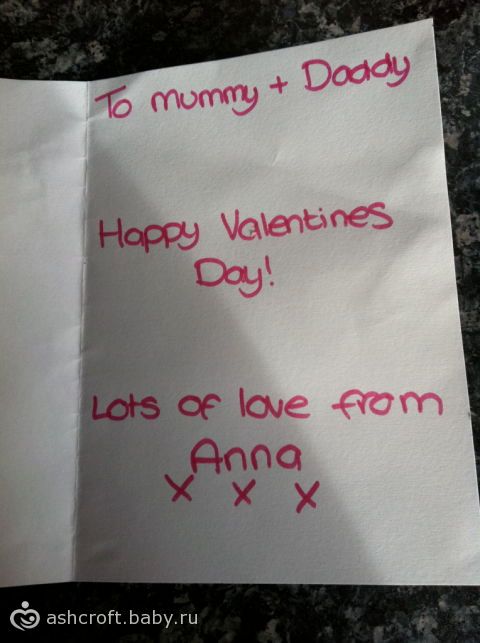 To mummy + Daddy
Happy Valentines
Day!
Lots of love from
Anna
x x x
ashcroft.baby.ru